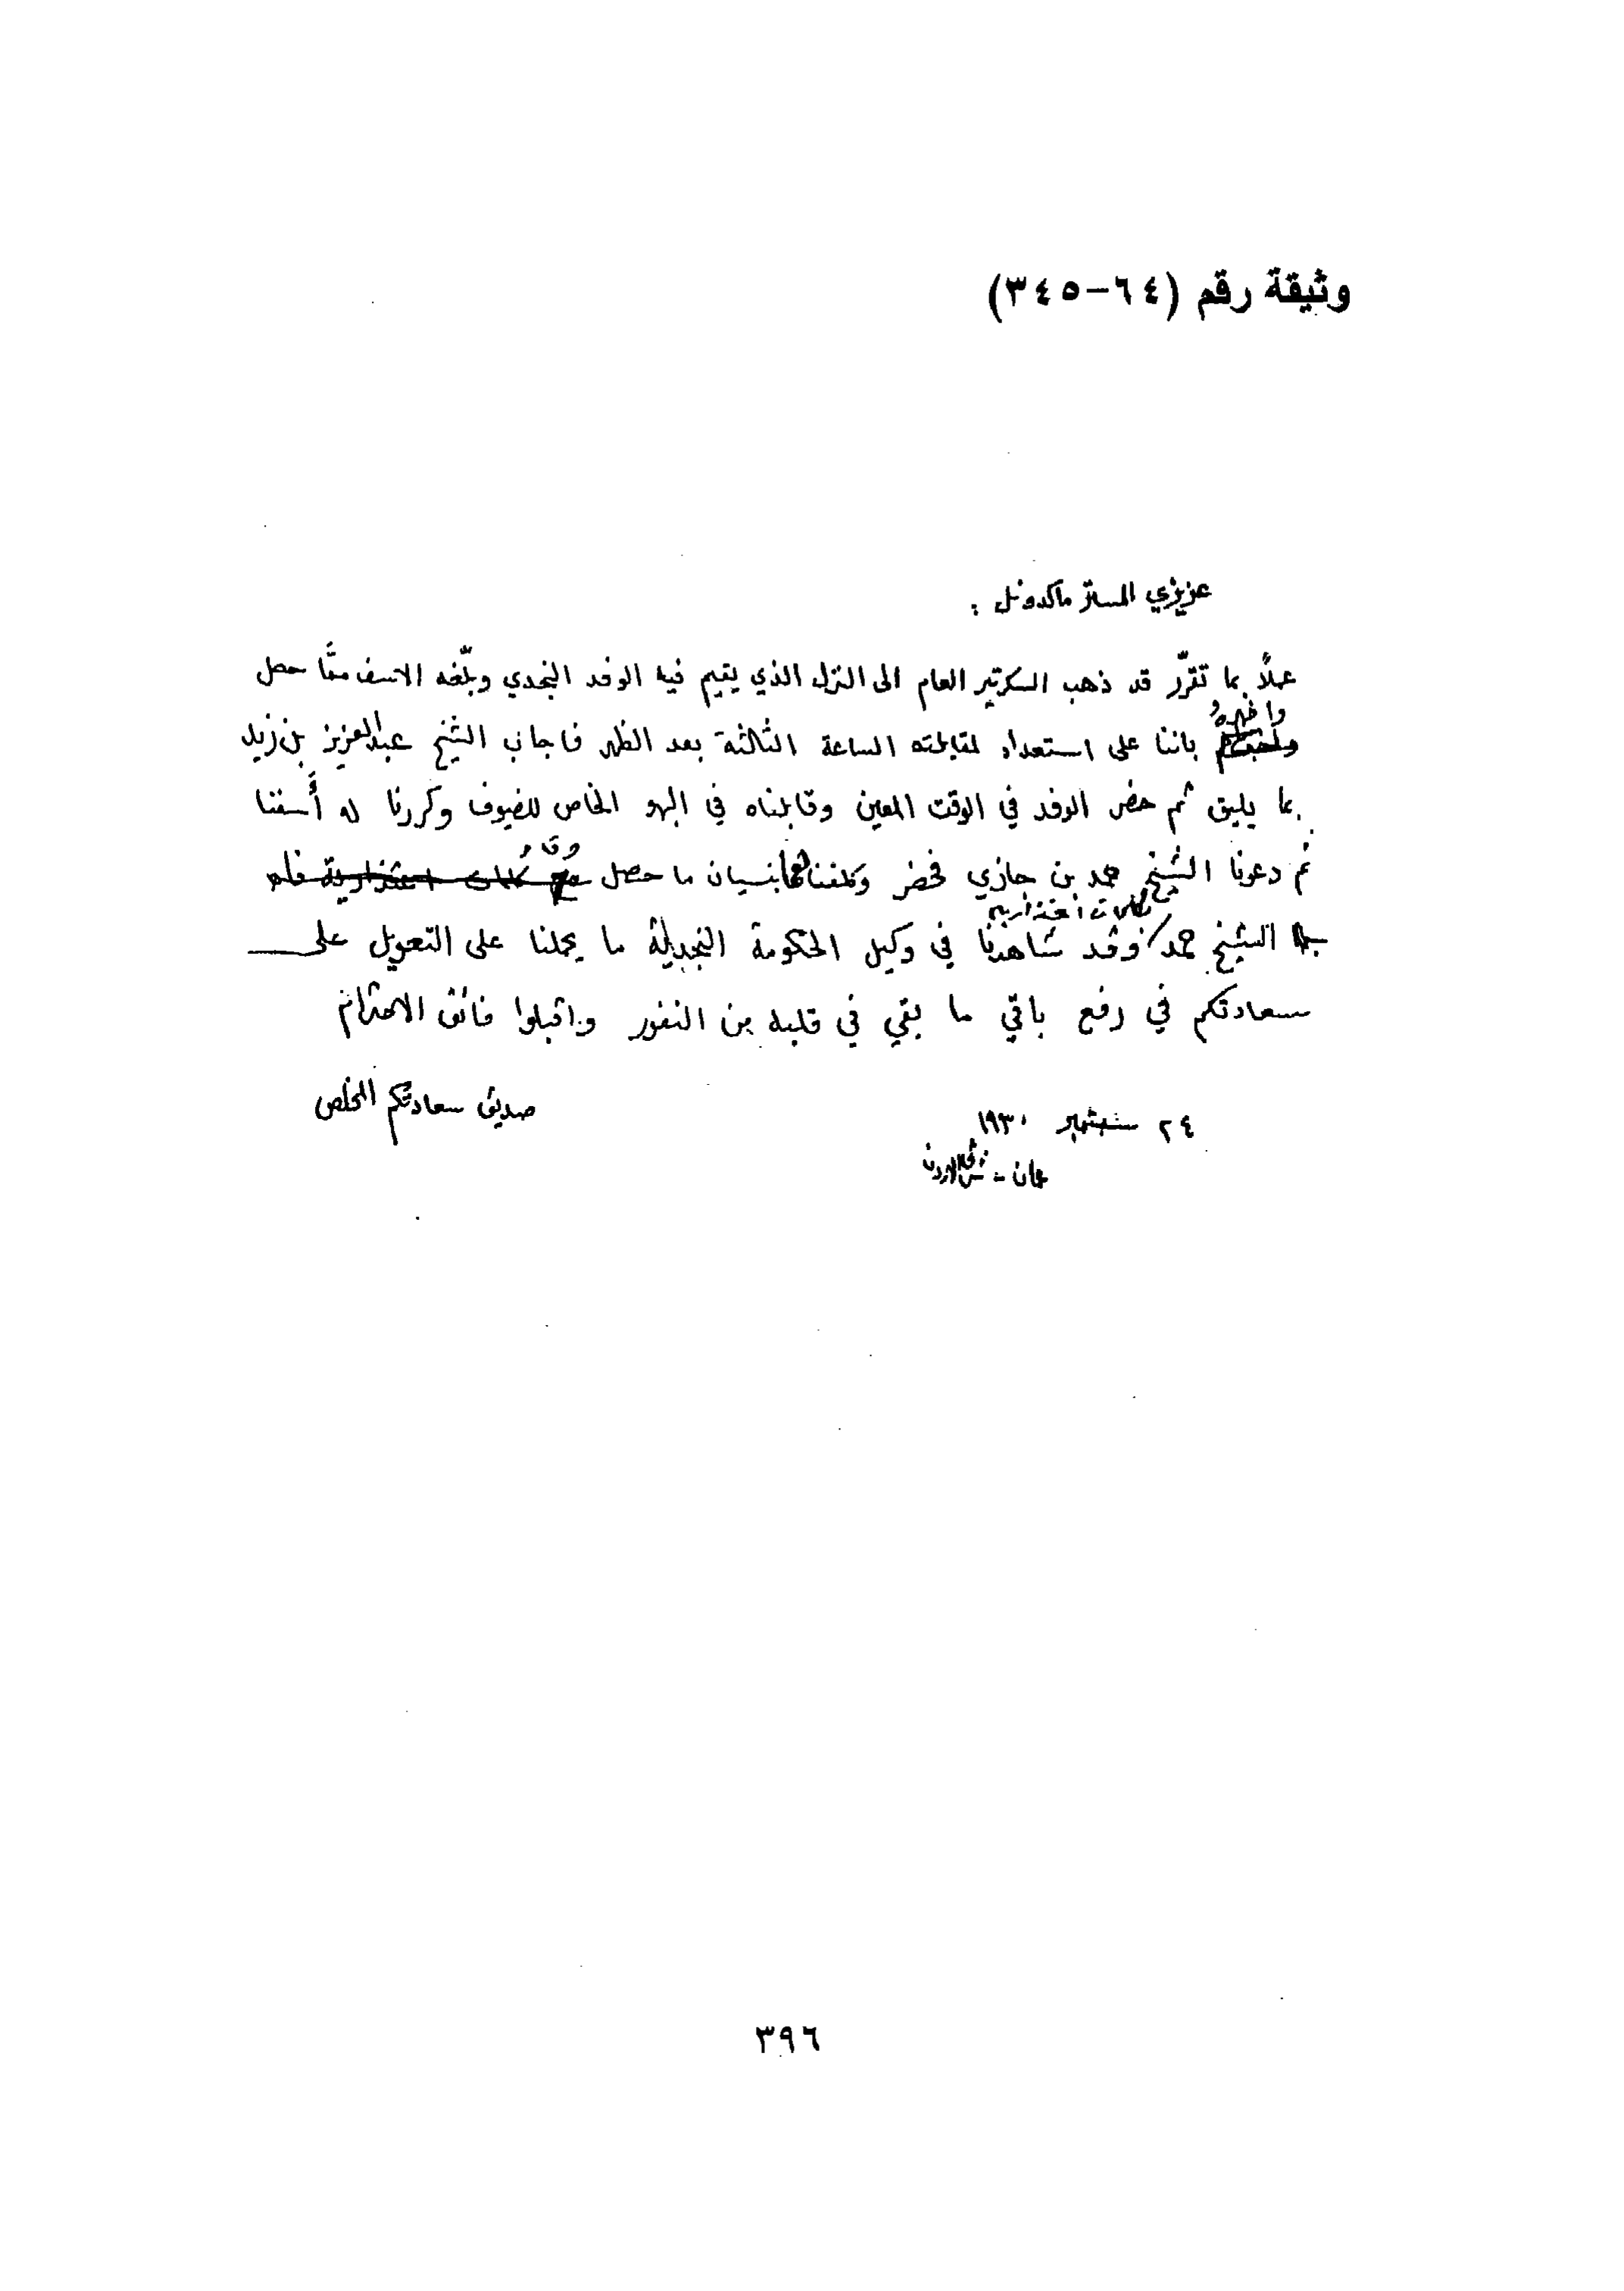 وثيقة رقم (٦٤-٣٤٥)
عزيزي المستر ماكدونل :
عملاً بما تقرّر قد ذهب السكرتير العام الى النزل الذي يقيم فيه الوفد النجدي وبلّغه الاسف ممّا حصل
واخبره
باننا على استعداد لمقابلته الساعة الثالثة بعد الظهر فاجاب الشيخ عبدالعزيز بن زيد
بما يليق ثم حضر الوفد في الوقت المعين وقابلناه في البهو الخاص للضيوف وكررنا له أسفنا
وقام
ثم دعونا الشيخ حمد بن جازي فحضر وكلفناهما بنسيان ما حصل مع كلمات اعتذارية فاه
بكلمات اعتذاريه
بها الشيخ حمد وقد شاهدنا في وكيل الحكومة النجدية ما يحملنا على التعويل على
سعادتكم في رفع باقي ما بقي في قلبه من النفور واقبلوا فائق الاحترام
صديق سعادتكم المخلص
٢٤ سبتمبر ١٩٣٠
عمان - شرقي الاردن
٣٩٦